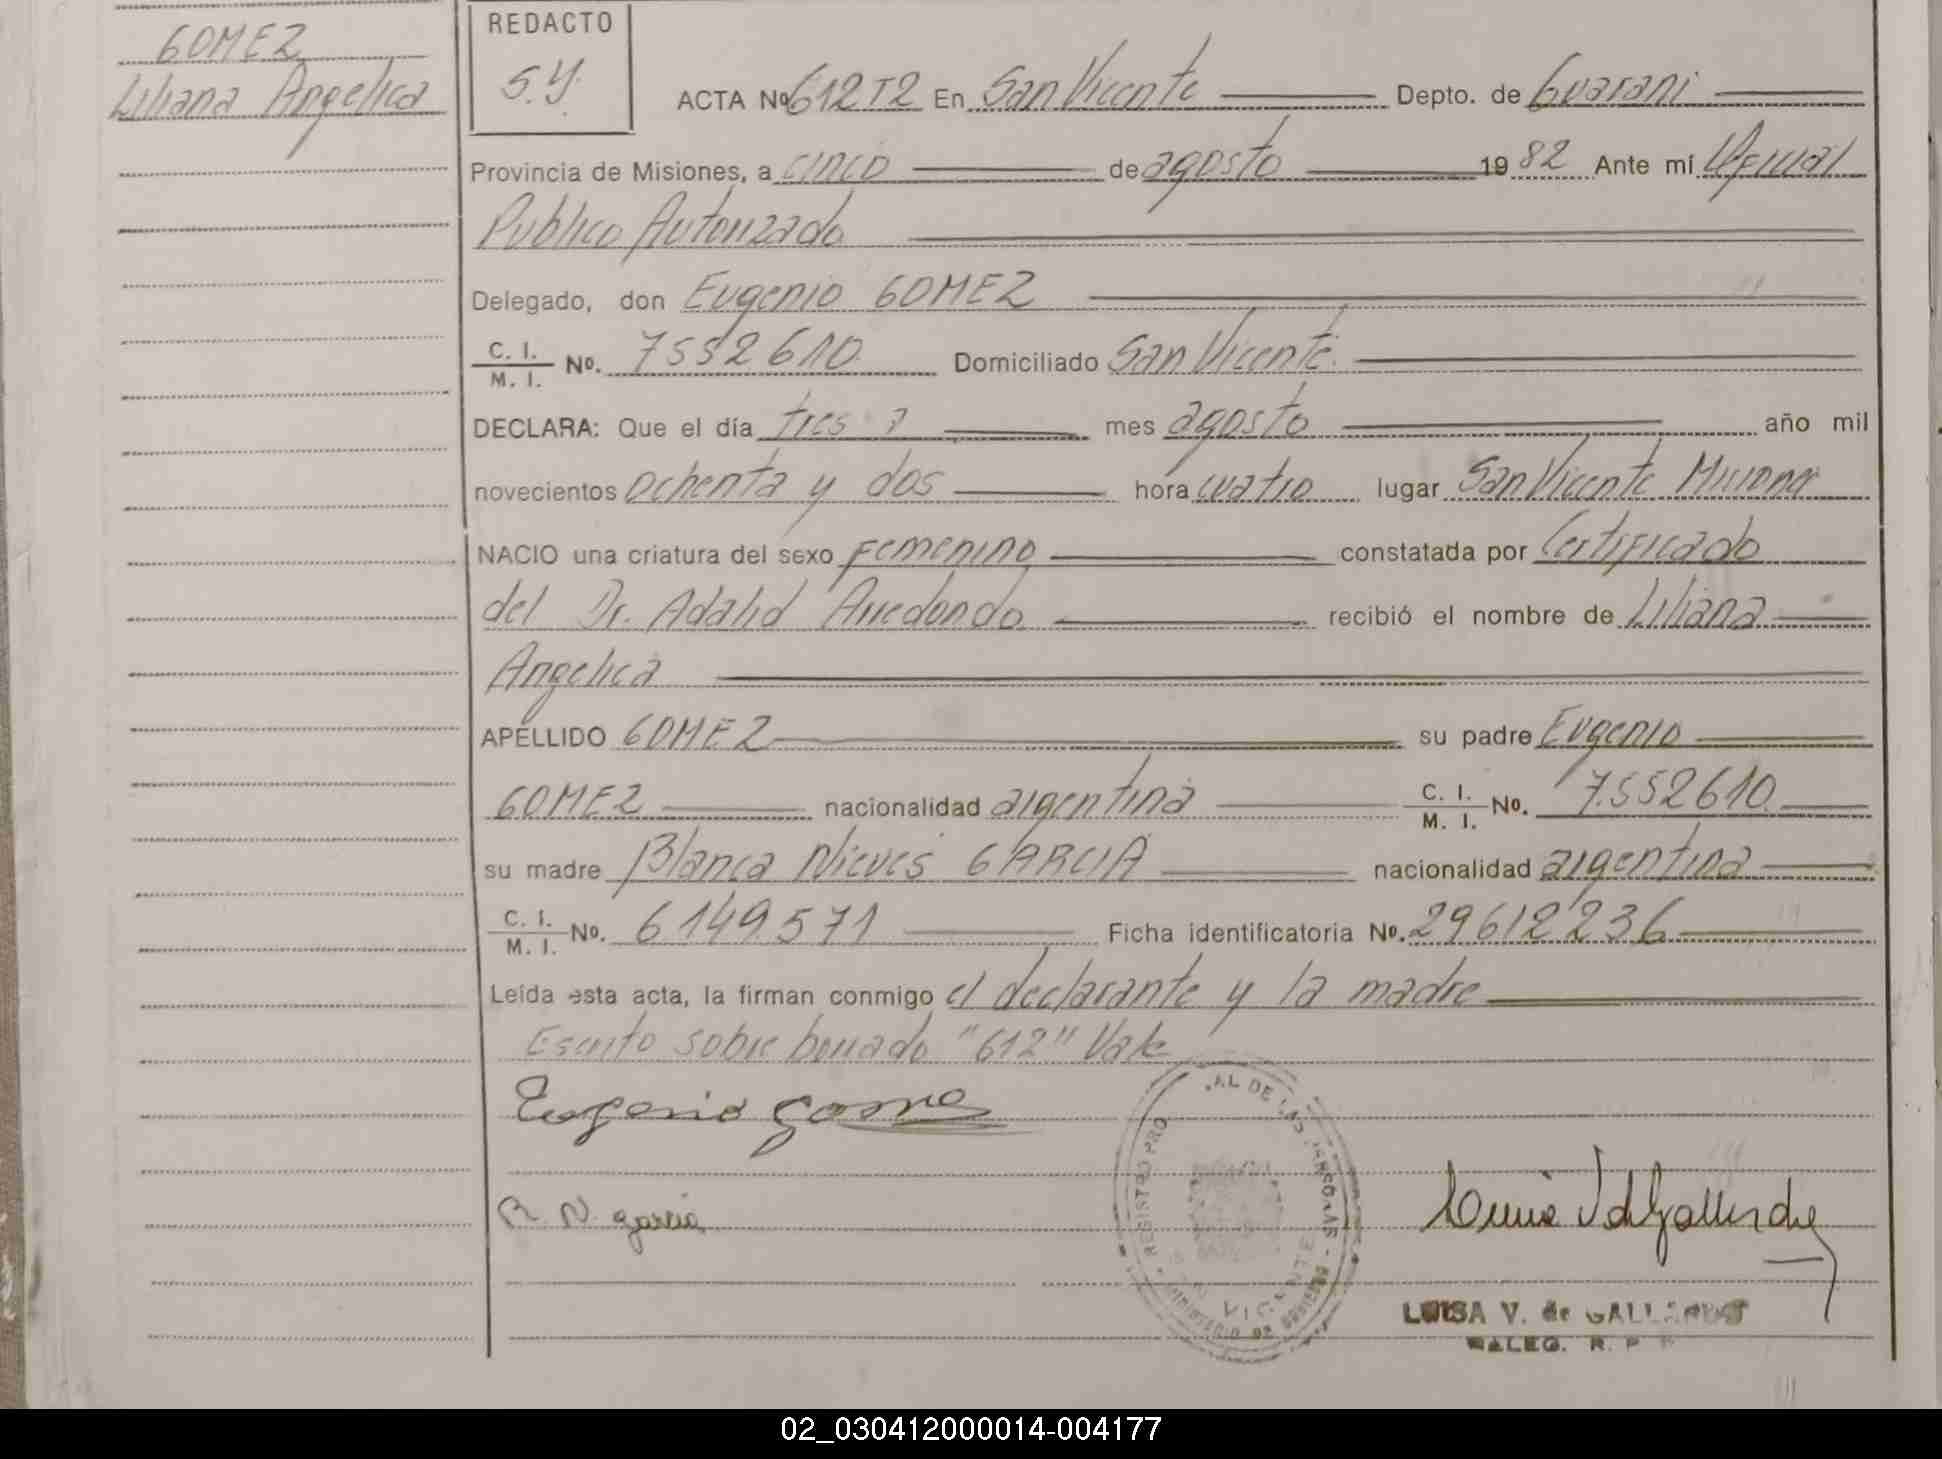 GOMEZ
Liliana Angelica
REDACTO
S.Y.
ACTA Nº 612 T2 En San Vicente Depto. de Guarani
Provincia de Misiones, a cinco de agosto 1982 Ante mí Oficial
Publico Autorizado
Delegado, don Eugenio GOMEZ
C. I. / M. I. Nº. 7552610 Domiciliado San Vicente
DECLARA: Que el día tres mes agosto año mil
novecientos ochenta y dos hora cuatro lugar San Vicente Misiones
NACIO una criatura del sexo Femenino constatada por Certificado
del Dr. Adalid Arredondo recibió el nombre de Liliana
Angelica
APELLIDO GOMEZ su padre Eugenio
GOMEZ nacionalidad argentina C. I. / M. I. Nº. 7.552610
su madre Blanca Nieves GARCIA nacionalidad argentina
C. I. / M. I. Nº. 6149.571 Ficha identificatoria Nº. 29612236
Leída esta acta, la firman conmigo el declarante y la madre
Escrito sobre borrado "612" Vale
Eugenio Gomez
B. N. garcia
REGISTRO PRO AL DE LAS PERSONAS
VICENTE
MINISTERIO DE GOBIERNO
LUISA V. de GALLARDO
DALEG. R. P.
02_030412000014-004177